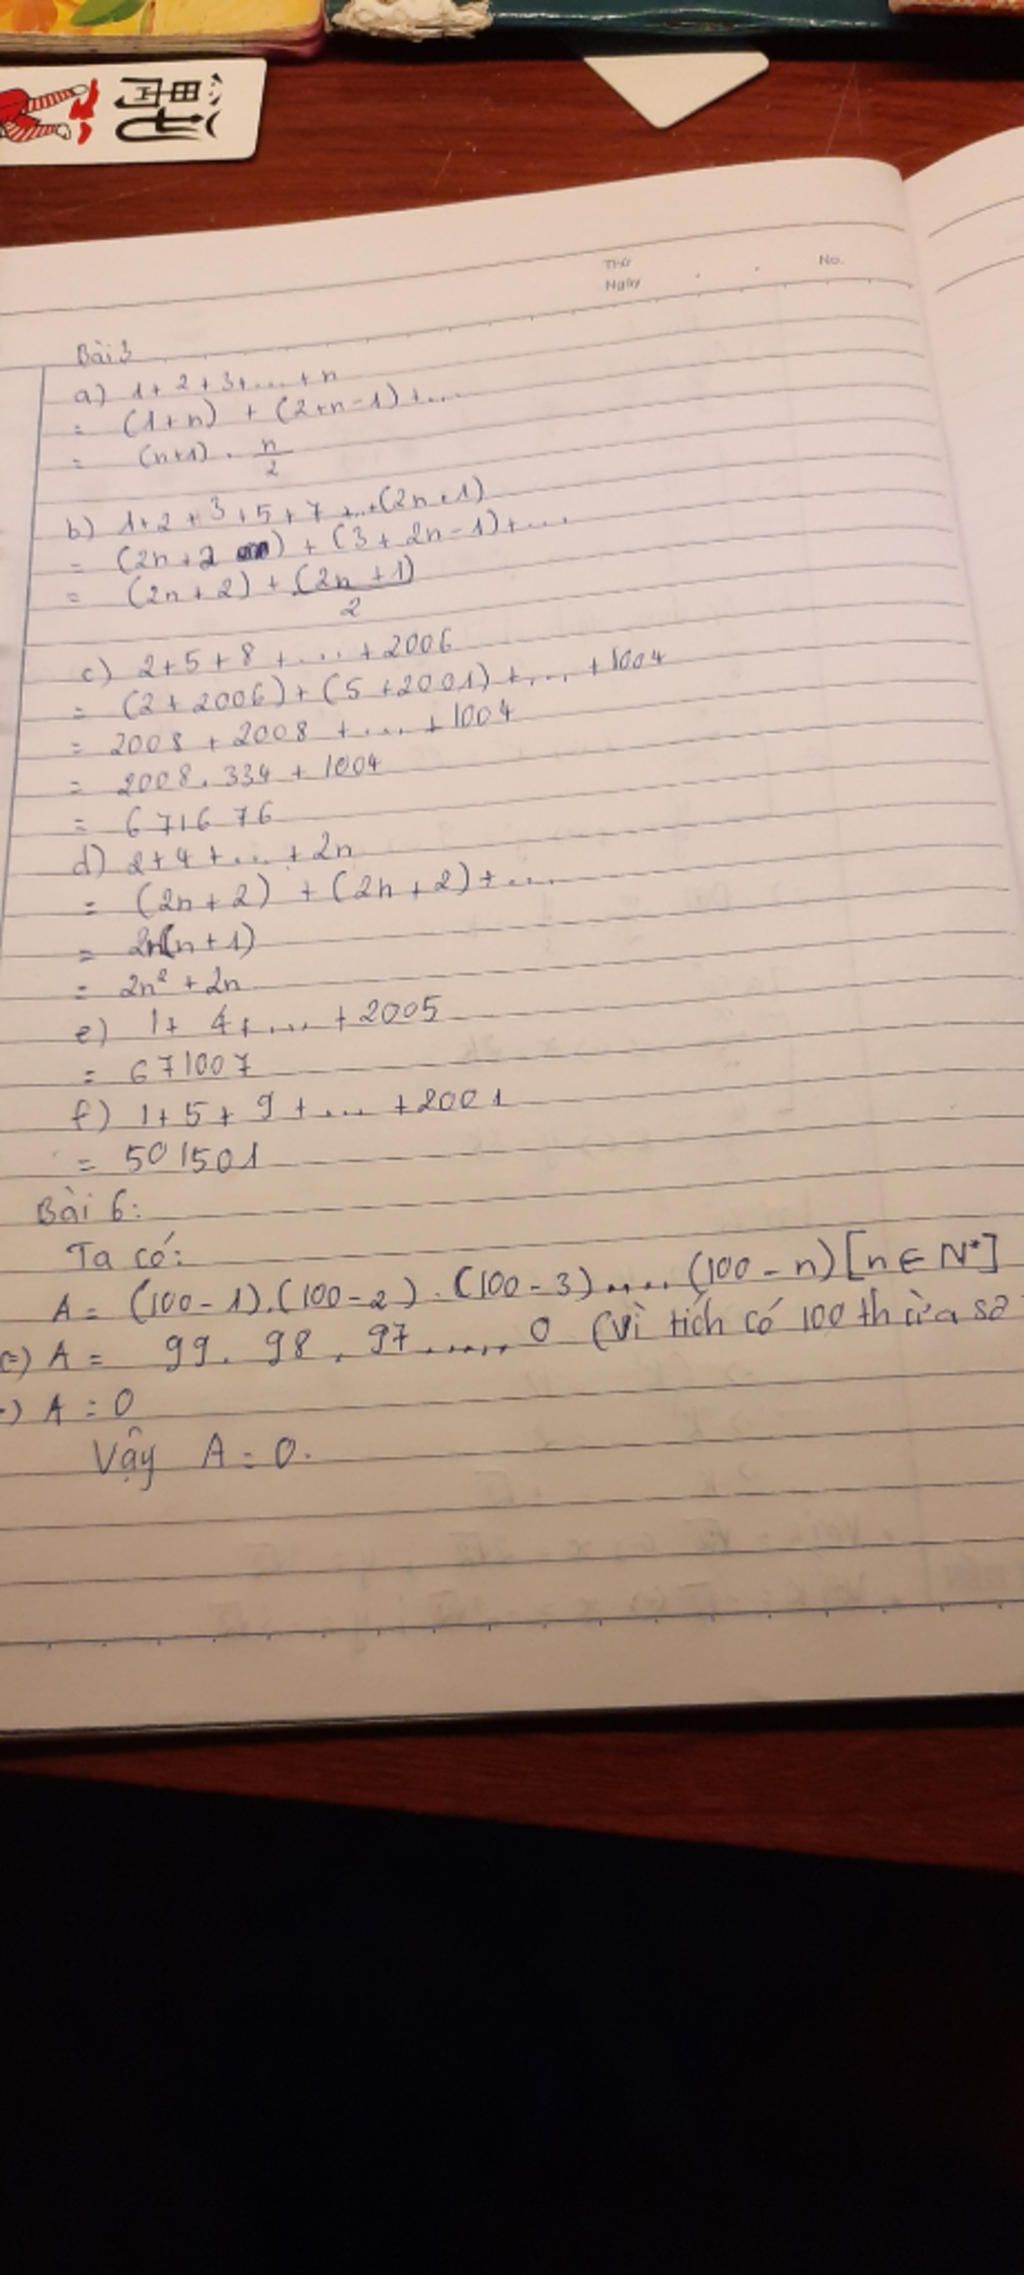 Thứ
Ngày . . No.
Bài 3
a) 1+2+3+...+n
= (1+n) + (2+n-1)+...
= (n+1) . n/2
b) 1+2+3+5+7+...+(2n+1)
= (2n+2) + (3+2n-1)+...
= (2n+2) + (2n+1)/2
c) 2+5+8+...+2006
= (2+2006)+(5+2001)+...+1004
= 2008+2008+...+1004
= 2008.334+1004
= 671676
d) 2+4+...+2n
= (2n+2) + (2n+2)+...
= 2n(n+1)
= 2n²+2n
e) 1+4+...+2005
= 671007
f) 1+5+9+...+2001
= 501501
Bài 6:
Ta có:
A= (100-1).(100-2).(100-3)....(100-n)[n∈N*]
=) A= 99.98.97.....0 (Vì tích có 100 thừa số
=) A=0
Vậy A=0.